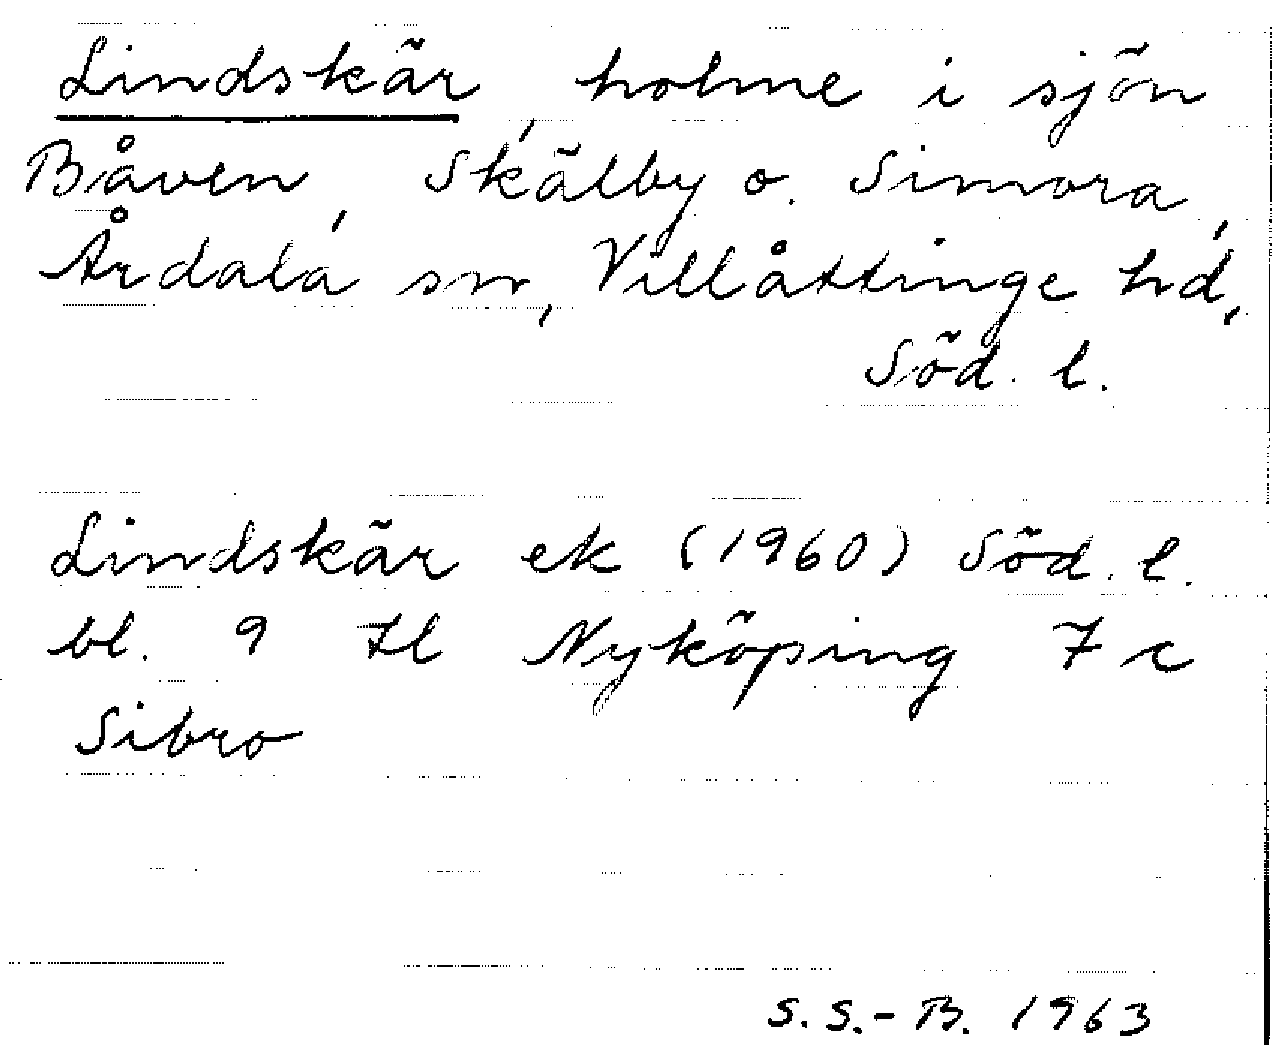 Lindskär, holme i sjön
Båven, Skälby o. Simora,
Årdala sn, Villåttinge hd,
Söd. l.
Lindskär ek (1960) Söd. l.
bl. 9 Il Nyköping 7 c
Sibro
S. S.-B. 1963